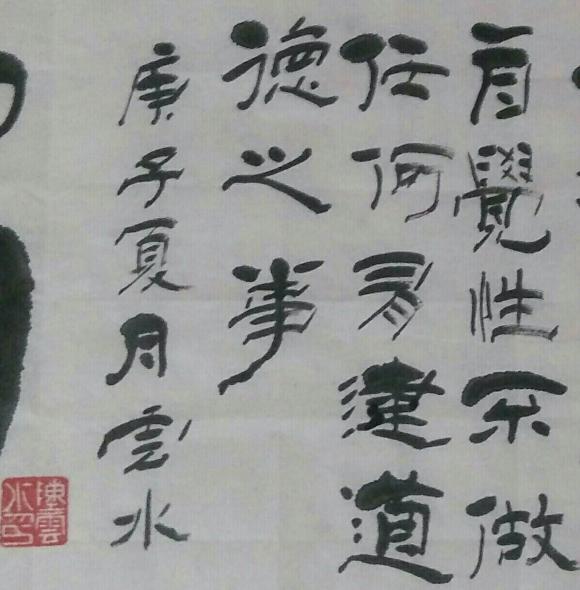 有覺性不做
任何有違道
德之事
庚子夏月雲水
陳雲水印